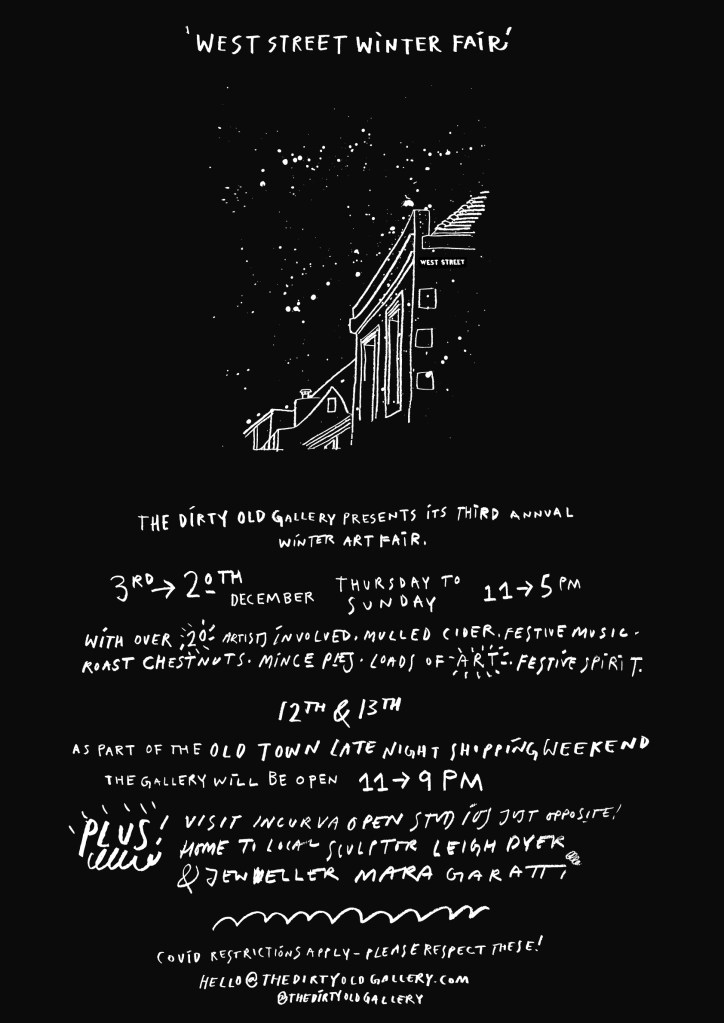 'WEST STREET WINTER FAIR'
WEST STREET
THE DIRTY OLD GALLERY PRESENTS ITS THIRD ANNUAL
WINTER ART FAIR.
3RD → 20TH DECEMBER THURSDAY TO SUNDAY 11 → 5 PM
WITH OVER 20 ARTISTS INVOLVED. MULLED CIDER. FESTIVE MUSIC.
ROAST CHESTNUTS. MINCE PIES. LOADS OF ART. FESTIVE SPIRIT.
12TH & 13TH
AS PART OF THE OLD TOWN LATE NIGHT SHOPPING WEEKEND
THE GALLERY WILL BE OPEN 11 → 9 PM
PLUS! VISIT INCURVA OPEN STUDIOS JUST OPPOSITE!
HOME TO LOCAL SCULPTOR LEIGH DYER
& JEWELLER MARA GARATTI
COVID RESTRICTIONS APPLY - PLEASE RESPECT THESE!
HELLO@THEDIRTYOLDGALLERY.COM
@THEDIRTYOLDGALLERY